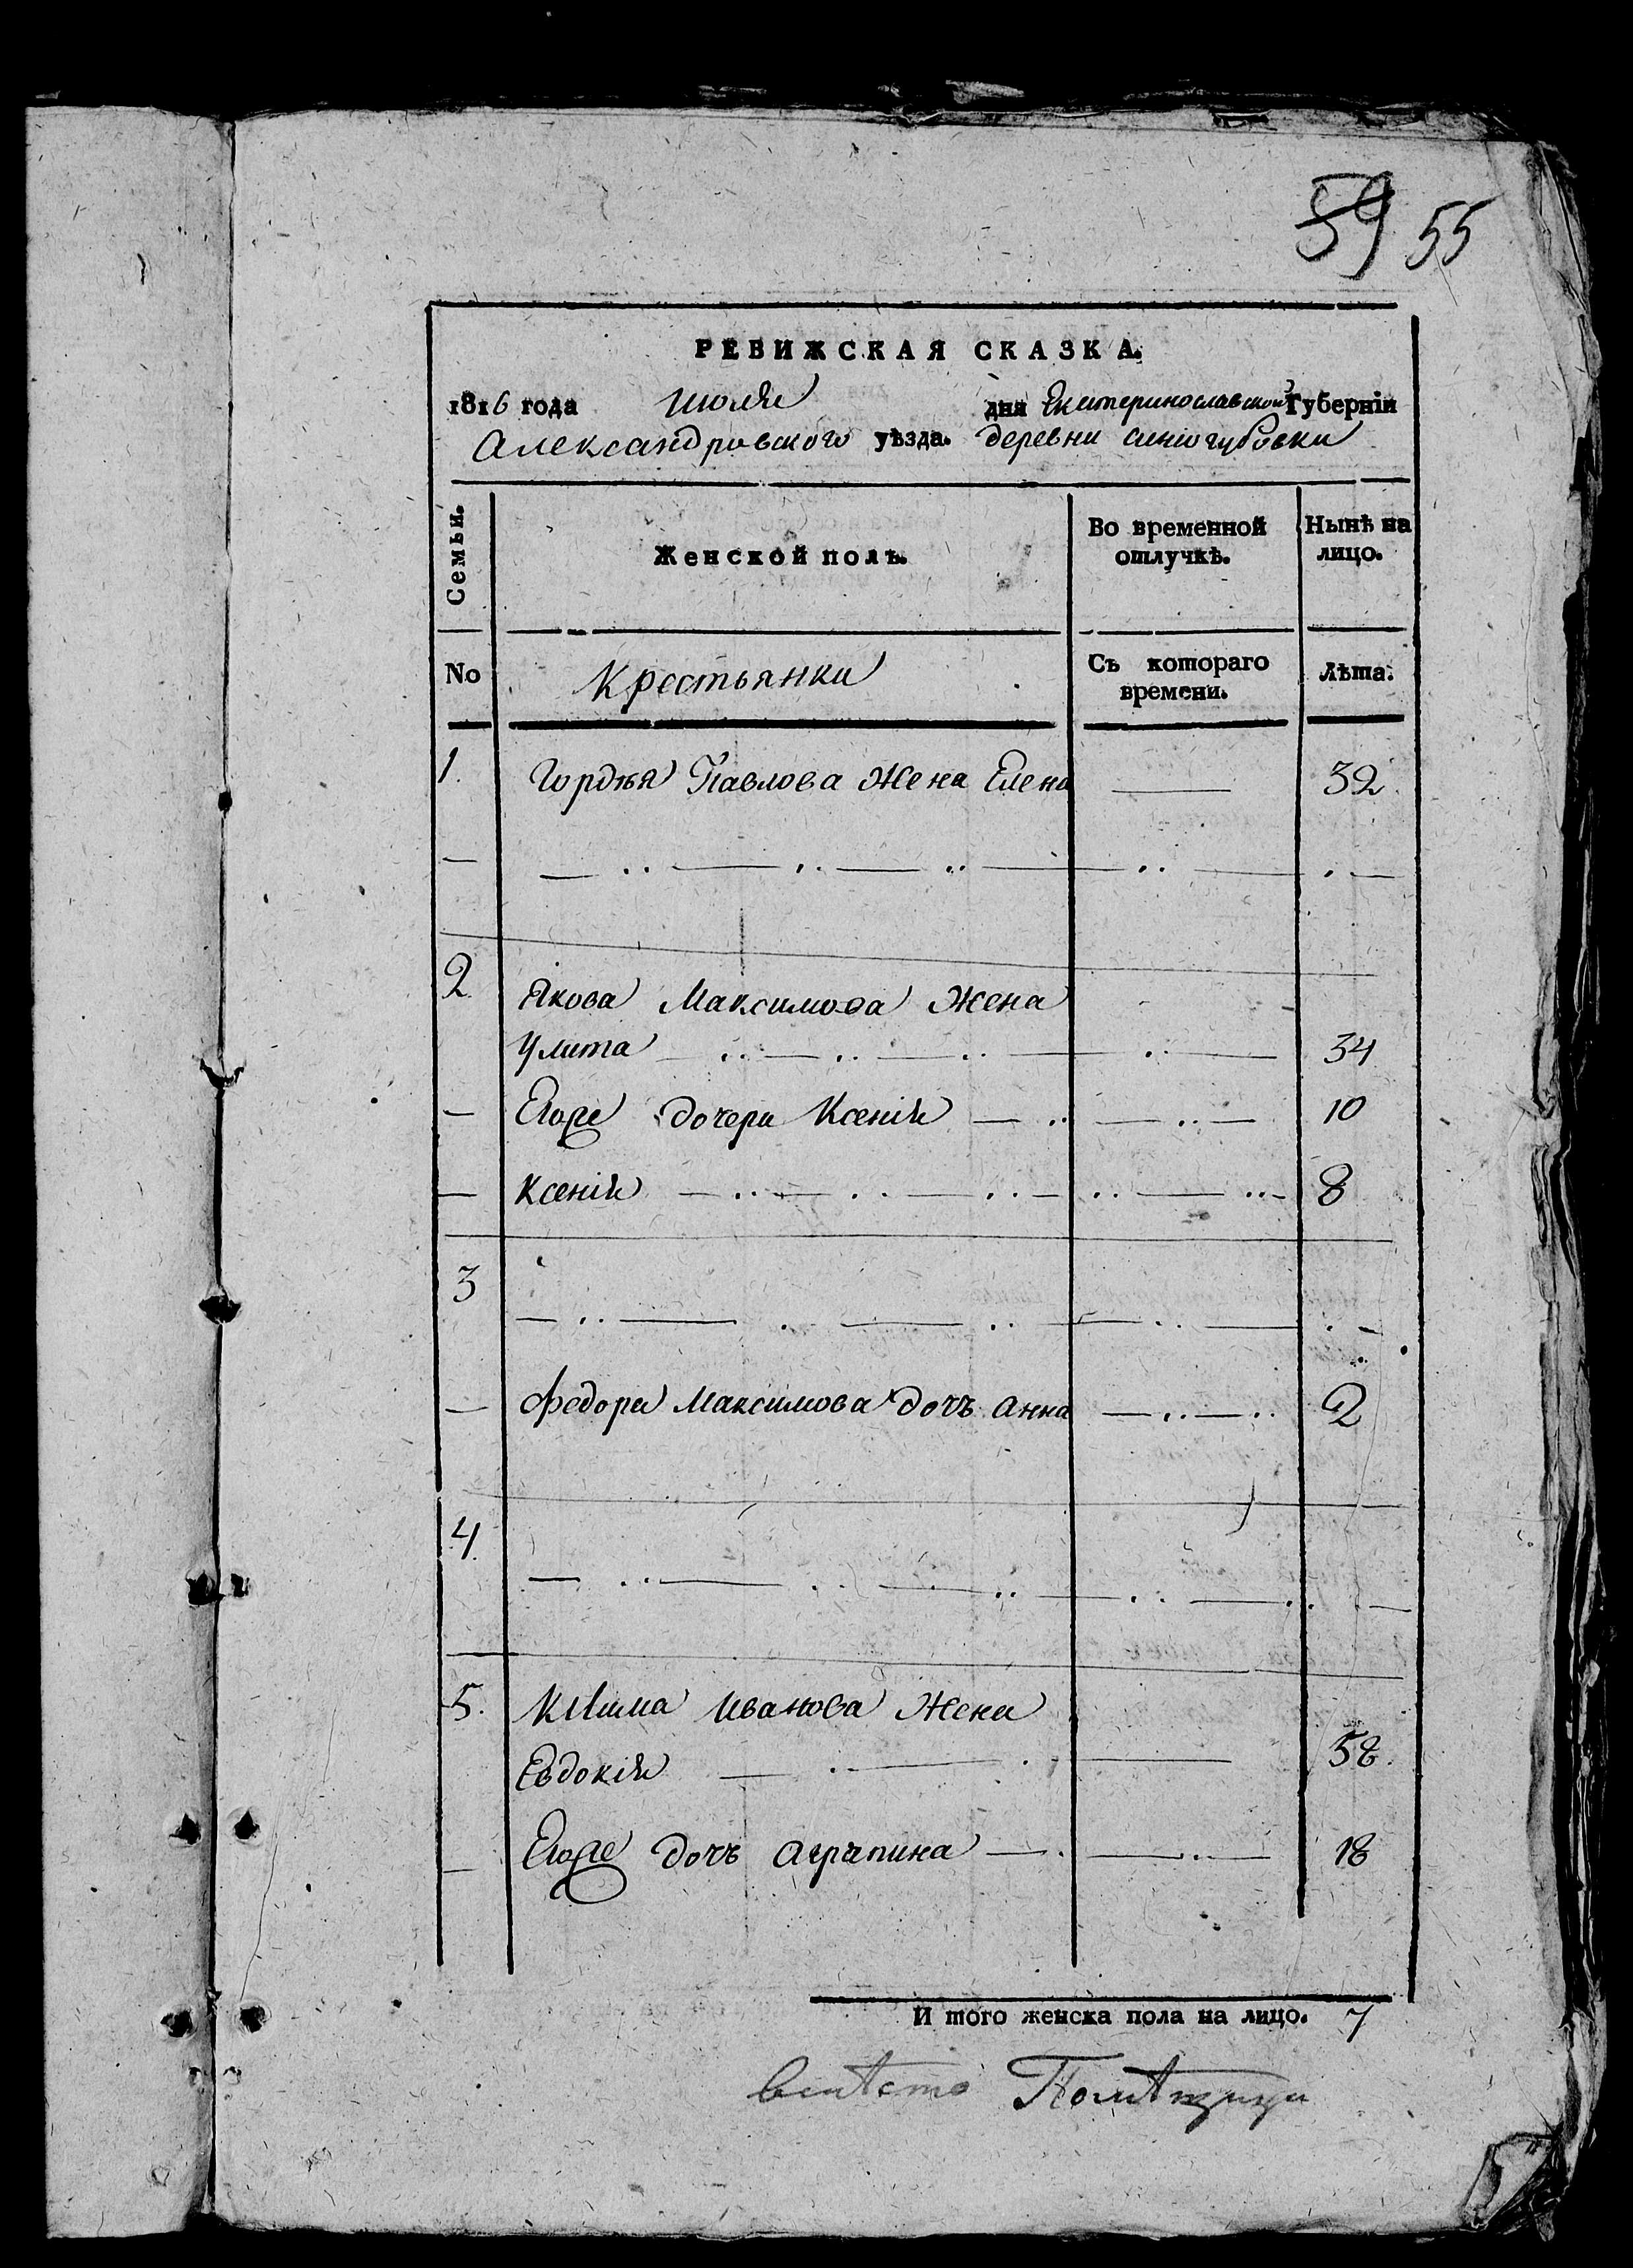 59 55
РЕВИЖСКАЯ СКАЗКА.
1816 года июля дня Екатеринославской Губерніи
Александровского уѣзда. деревни синюгубовки
Семьи. Женской полъ. Во временной Нынѣ на
отлучкѣ. лицо.
No Крестьянки Съ котораго Лѣта.
времени.
1. Гордѣя Павлова жена Елена 32
2 Якова Максимова жена
Улита 34
Егоже дочери Ксенія 10
Ксенія 8
3
Федора Максимова дочь анна 2
4.
5. Клима Иванова жена
Евдокія 58.
Егоже дочь аграпина 18
И того женска пола на лицо. 7
вмѣсто Помѣщицы